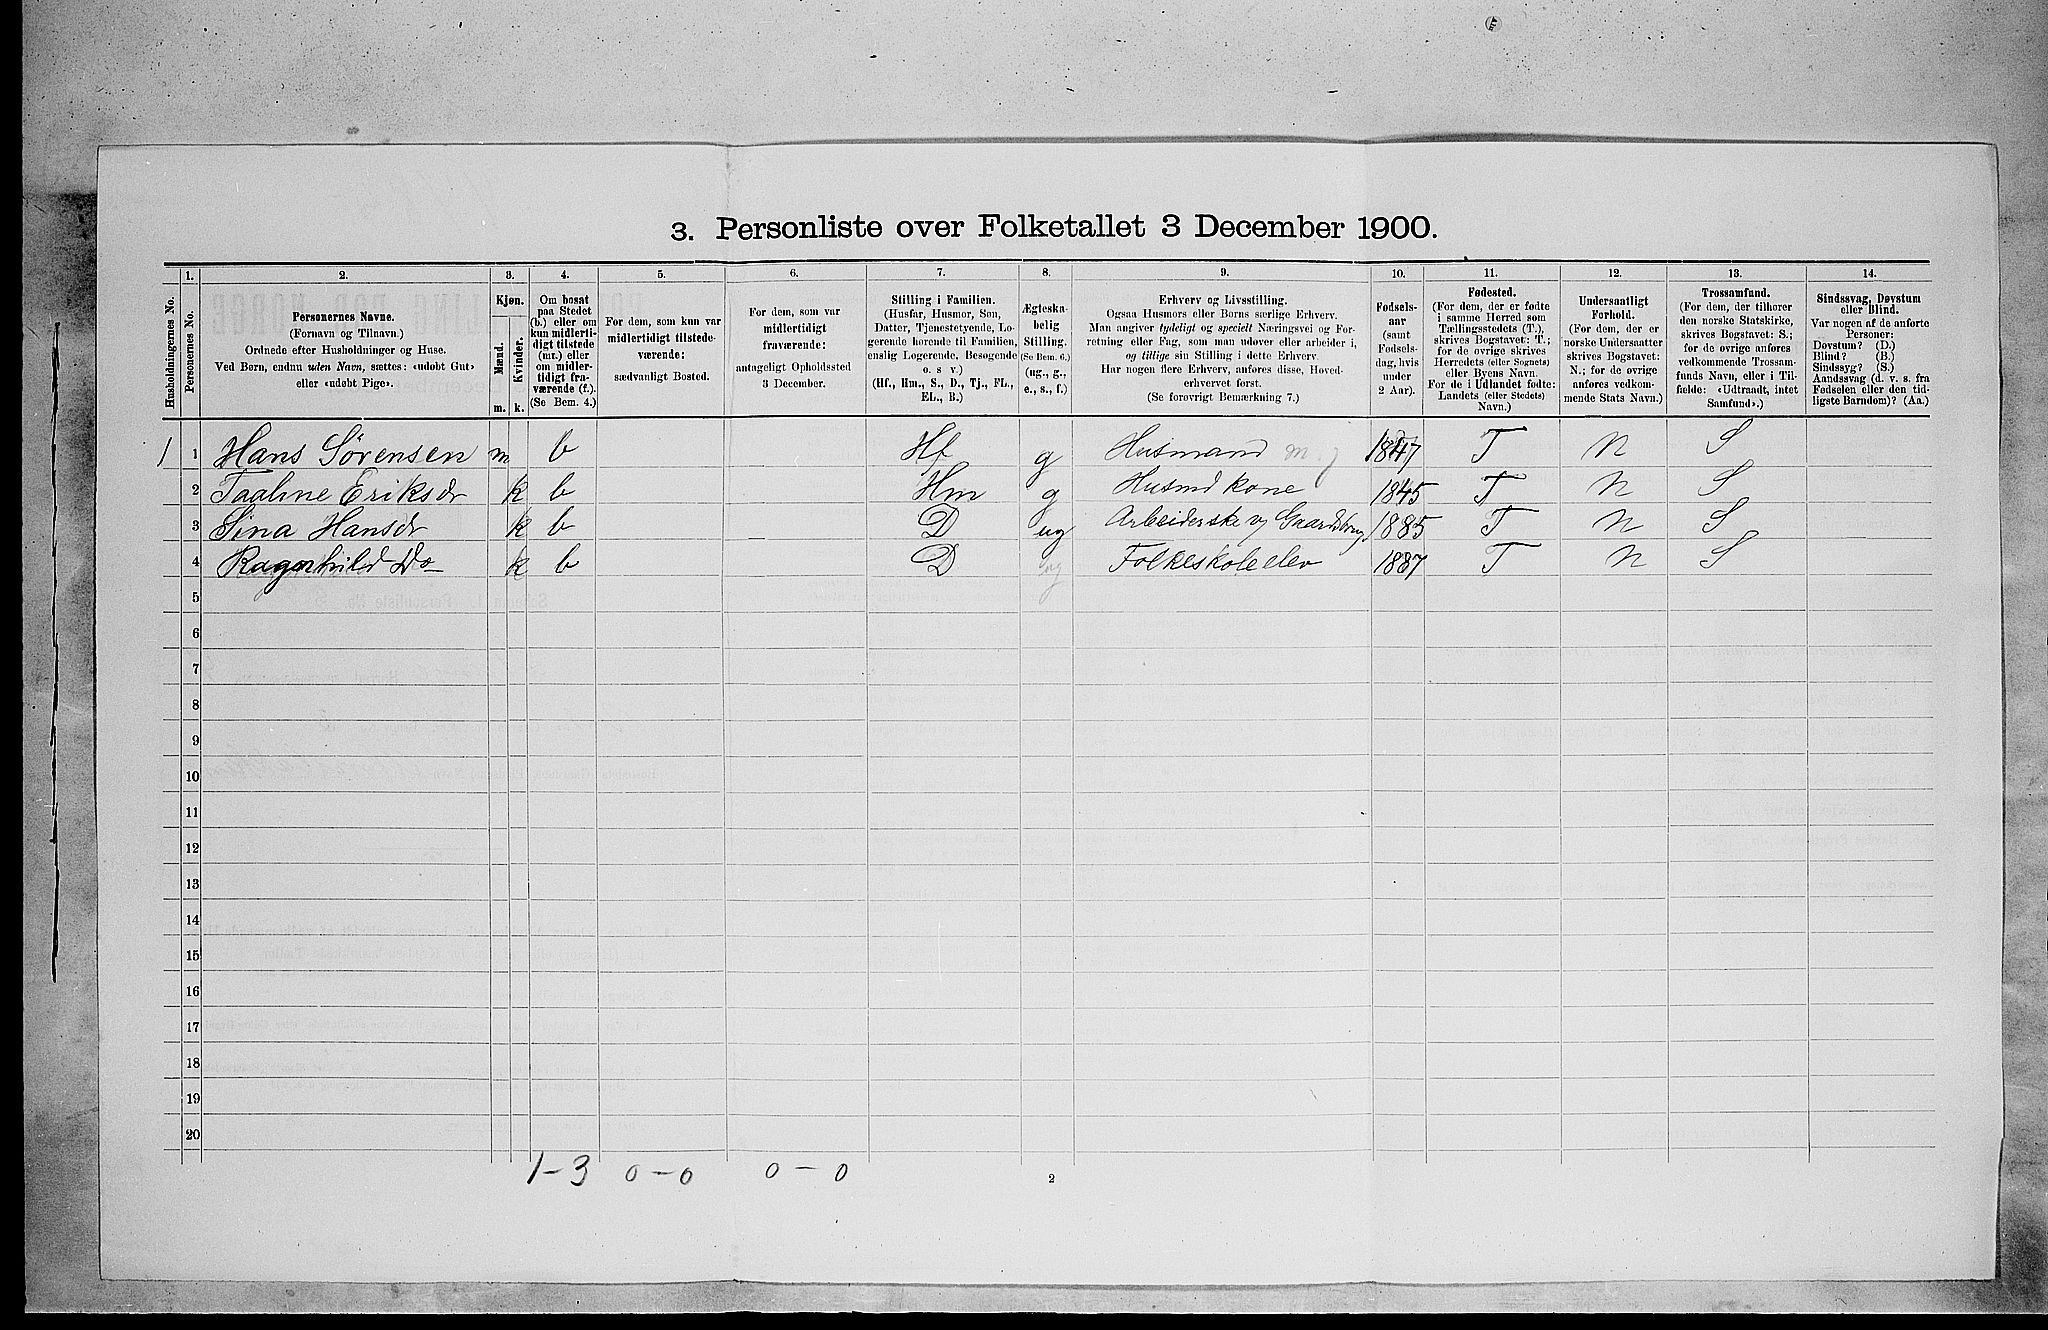 3. Personliste over Folketallet 3 December 1900.
1. 2. 3. 4. 5. 6. 7. 8. 9. 10. 11. 12. 13. 14.
Husholdningernes No.
Personernes No.
Personernes Navne.
(Fornavn og Tilnavn.)
Ordnede efter Husholdninger og Huse.
Ved Børn, endnu uden Navn, sættes: «udøbt Gut»
eller «udøbt Pige».
Kjøn.
Mænd.
Kvinder.
m. k.
Om bosat
paa Stedet
(b.) eller om
kun midlerti-
digt tilstede
(mt.) eller
om midler-
tidigt fra-
værende (f.).
(Se Bem. 4.)
For dem, som kun var
midlertidigt tilstede-
værende:
sædvanligt Bosted.
For dem, som var
midlertidigt
fraværende:
antageligt Opholdssted
3 December.
Stilling i Familien.
(Husfar, Husmor, Søn,
Datter, Tjenestetyende, Lo-
gerende hørende til Familien,
enslig Logerende, Besøgende
o. s v.)
(Hf., Hm., S., D., Tj., FL.,
EL., B.)
Ægteska-
belig
Stilling.
(Se Bem. 6.)
(ug., g.,
e., s., f.)
Erhverv og Livsstilling.
Ogsaa Husmors eller Børns særlige Erhverv.
Man angiver tydeligt og specielt Næringsvei og For-
retning eller Fag, som man udøver eller arbeider i,
og tillige sin Stilling i dette Erhverv.
Har nogen flere Erhverv, anføres disse, Hoved-
erhvervet først.
(Se forøvrigt Bemærkning 7.)
Fødsels-
aar
(samt
Fødsels-
dag, hvis
under
2 Aar).
Fødested.
(For dem, der er fødte
i samme Herred som
Tællingsstedets (T.),
skrives Bogstavet: T.;
for de øvrige skrives
Herredets (eller Sognets)
eller Byens Navn.
For de i Udlandet fødte:
Landets (eller Stedets)
Navn.)
Undersaatligt
Forhold.
(For dem, der er
norske Undersaatter
skrives Bogstavet:
N.; for de øvrige
anføres vedkom-
mende Stats Navn.)
Trossamfund.
(For dem, der tilhører
den norske Statskirke,
skrives Bogstavet: S.;
for de øvrige anføres
vedkommende Trossam-
funds Navn, eller i Til-
fælde: «Udtraadt, intet
Samfund».)
Sindssvag, Døvstum
eller Blind.
Var nogen af de anførte
Personer:
Døvstum? (D.)
Blind? (B.)
Sindssyg? (S.)
Aandssvag (d. v. s. fra
Fødselen eller den tid-
ligste Barndom)? (Aa.)
1 1 Hans Sørensen m b Hf g Husmand m. j 1847 T N S
2 Taaline Eriksdr k b Hm g Husmd kone 1845 T N S
3 Sina Hansdr k b D ug Arbeiderske v/ Gaardsbrug 1885 T N S
4 Ragnhild Do k b D ug Folkeskoleelev 1887 T N S
5
6
7
8
9
10
11
12
13
14
15
16
17
18
19
20
1-3 0-0 0-0
2